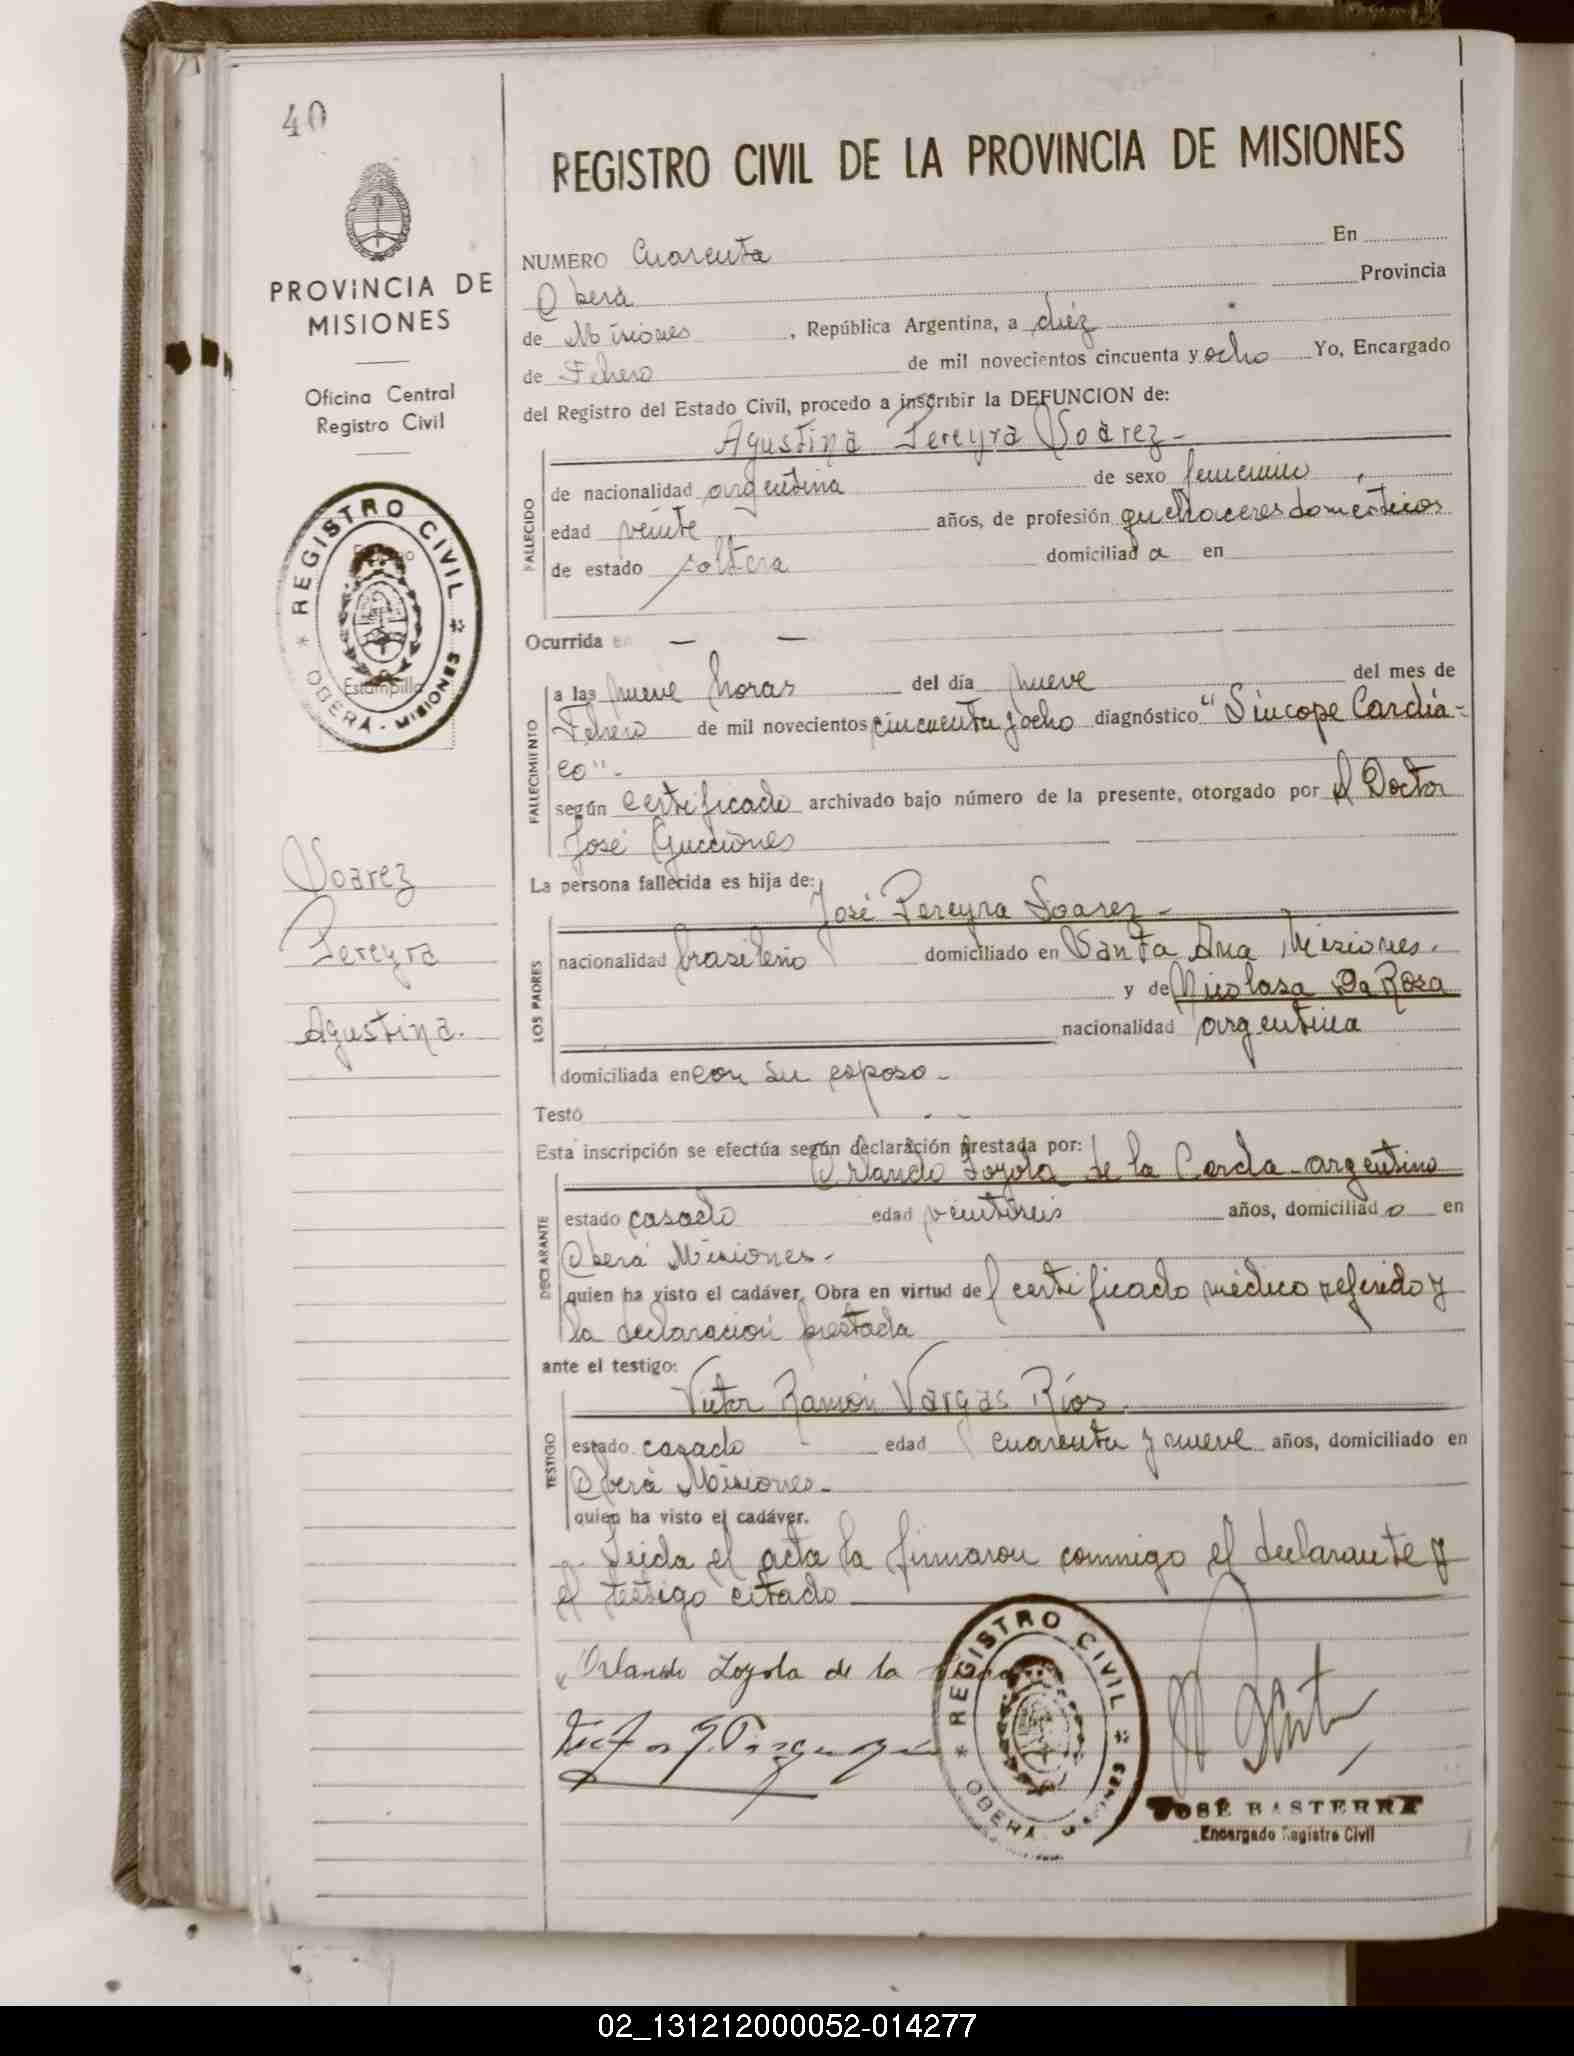 40
REGISTRO CIVIL DE LA PROVINCIA DE MISIONES
PROVINCIA DE
MISIONES
Oficina Central
Registro Civil
REGISTRO CIVIL
OBERÁ - MISIONES
Estampilla
Soarez
Pereyra
Agustina.
NUMERO Cuarenta En
Oberá Provincia
de Misiones, República Argentina, a diéz
de Febrero de mil novecientos cincuenta y ocho Yo, Encargado
del Registro del Estado Civil, procedo a inscribir la DEFUNCION de:
Agustina Pereyra Soarez-
FALLECIDO
de nacionalidad argentina de sexo femenino,
edad veinte años, de profesión quehaceres domésticos
de estado soltera domiciliad a en
Ocurrida en — —
FALLECIMIENTO
a las nueve horas del día nueve del mes de
Febrero de mil novecientos cincuenta y ocho diagnóstico "Síncope Cardía=
co"-
según certificado archivado bajo número de la presente, otorgado por el Doctor
José Gucciones
La persona fallecida es hija de:
José Pereyra Soarez-
LOS PADRES
nacionalidad brasileño domiciliado en Santa Ana Misiones.
y de Nicolasa Da Rosa
nacionalidad argentina
domiciliada en con su esposo-
Testó - -
Esta inscripción se efectúa según declaración prestada por:
Orlando Loyola de la Cerda-argentino
DECLARANTE
estado casado edad veintiseis años, domiciliad o en
Oberá Misiones-
quien ha visto el cadáver. Obra en virtud del certificado médico referido y
la declaración prestada
ante el testigo:
Victor Ramón Vargas Ríos.
TESTIGO
estado casado edad cuarenta y nueve años, domiciliado en
Oberá Misiones-
quien ha visto el cadáver.
Leida el acta la firmaron conmigo el declarante y
el testigo citado
Orlando Loyola de la
REGISTRO CIVIL
OBERÁ
JOSÉ BASTERRA
Encargado Registro Civil
02_131212000052-014277